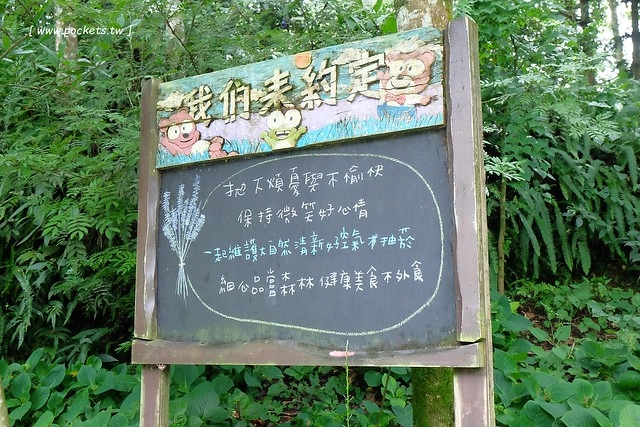 [ www.pockets.tw ]
我們來約定
拋下煩憂與不愉快
保持微笑好心情
一起維護大自然清新好空氣不抽菸
細心品嘗森林健康美食不外食